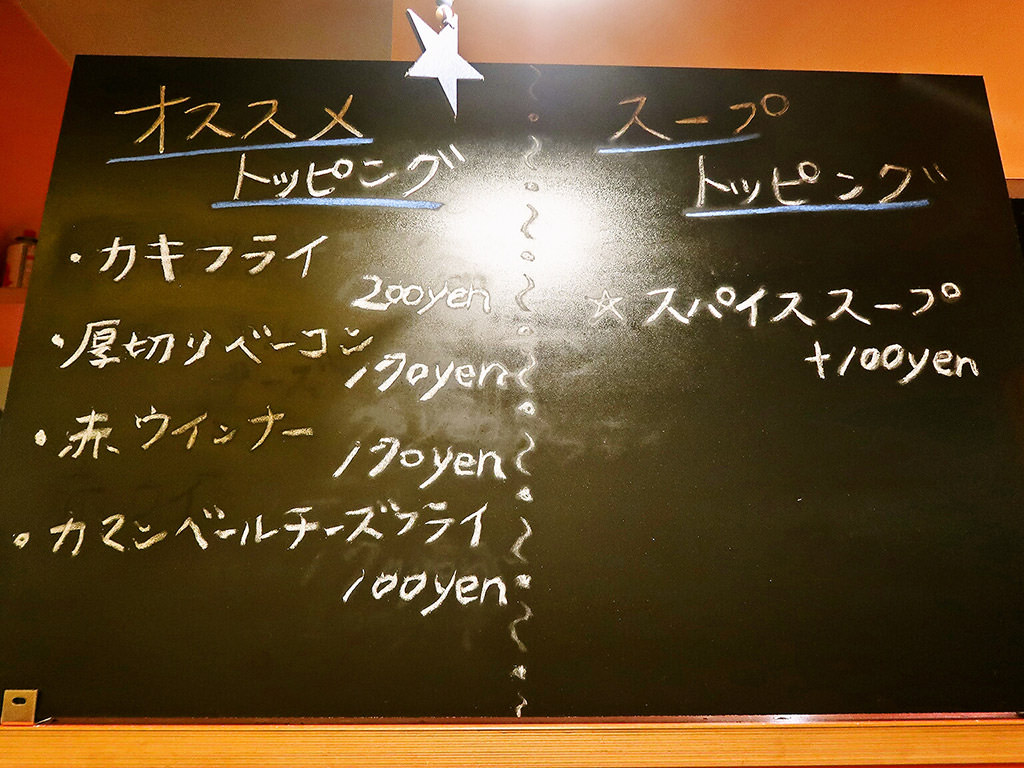 オススメ
トッピング
・カキフライ
200yen
・厚切りベーコン
170yen
・赤ウインナー
170yen
・カマンベールチーズフライ
100yen
スープ
トッピング
☆スパイススープ
+100yen